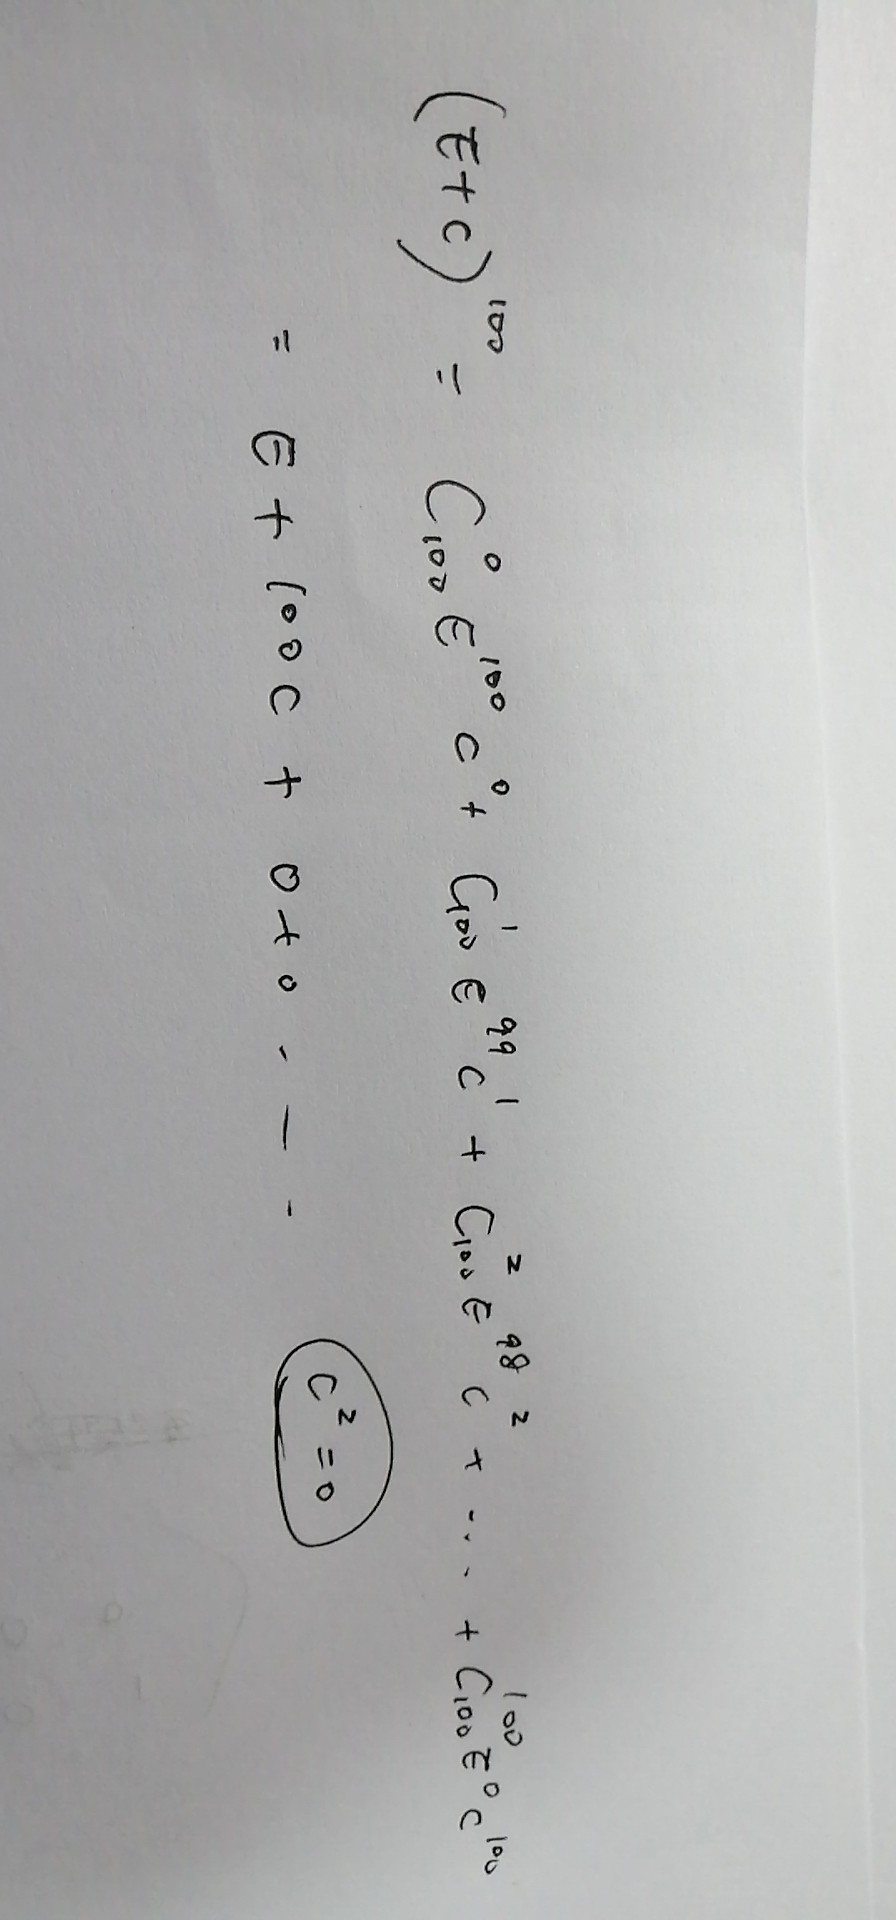 (E+C)¹⁰⁰ = C₁₀₀⁰ E¹⁰⁰ C⁰ + C₁₀₀¹ E⁹⁹ C¹ + C₁₀₀² E⁹⁸ C² + ... + C₁₀₀¹⁰⁰ E⁰ C¹⁰⁰
= E + 100C + 0 + 0 . — - C² = 0